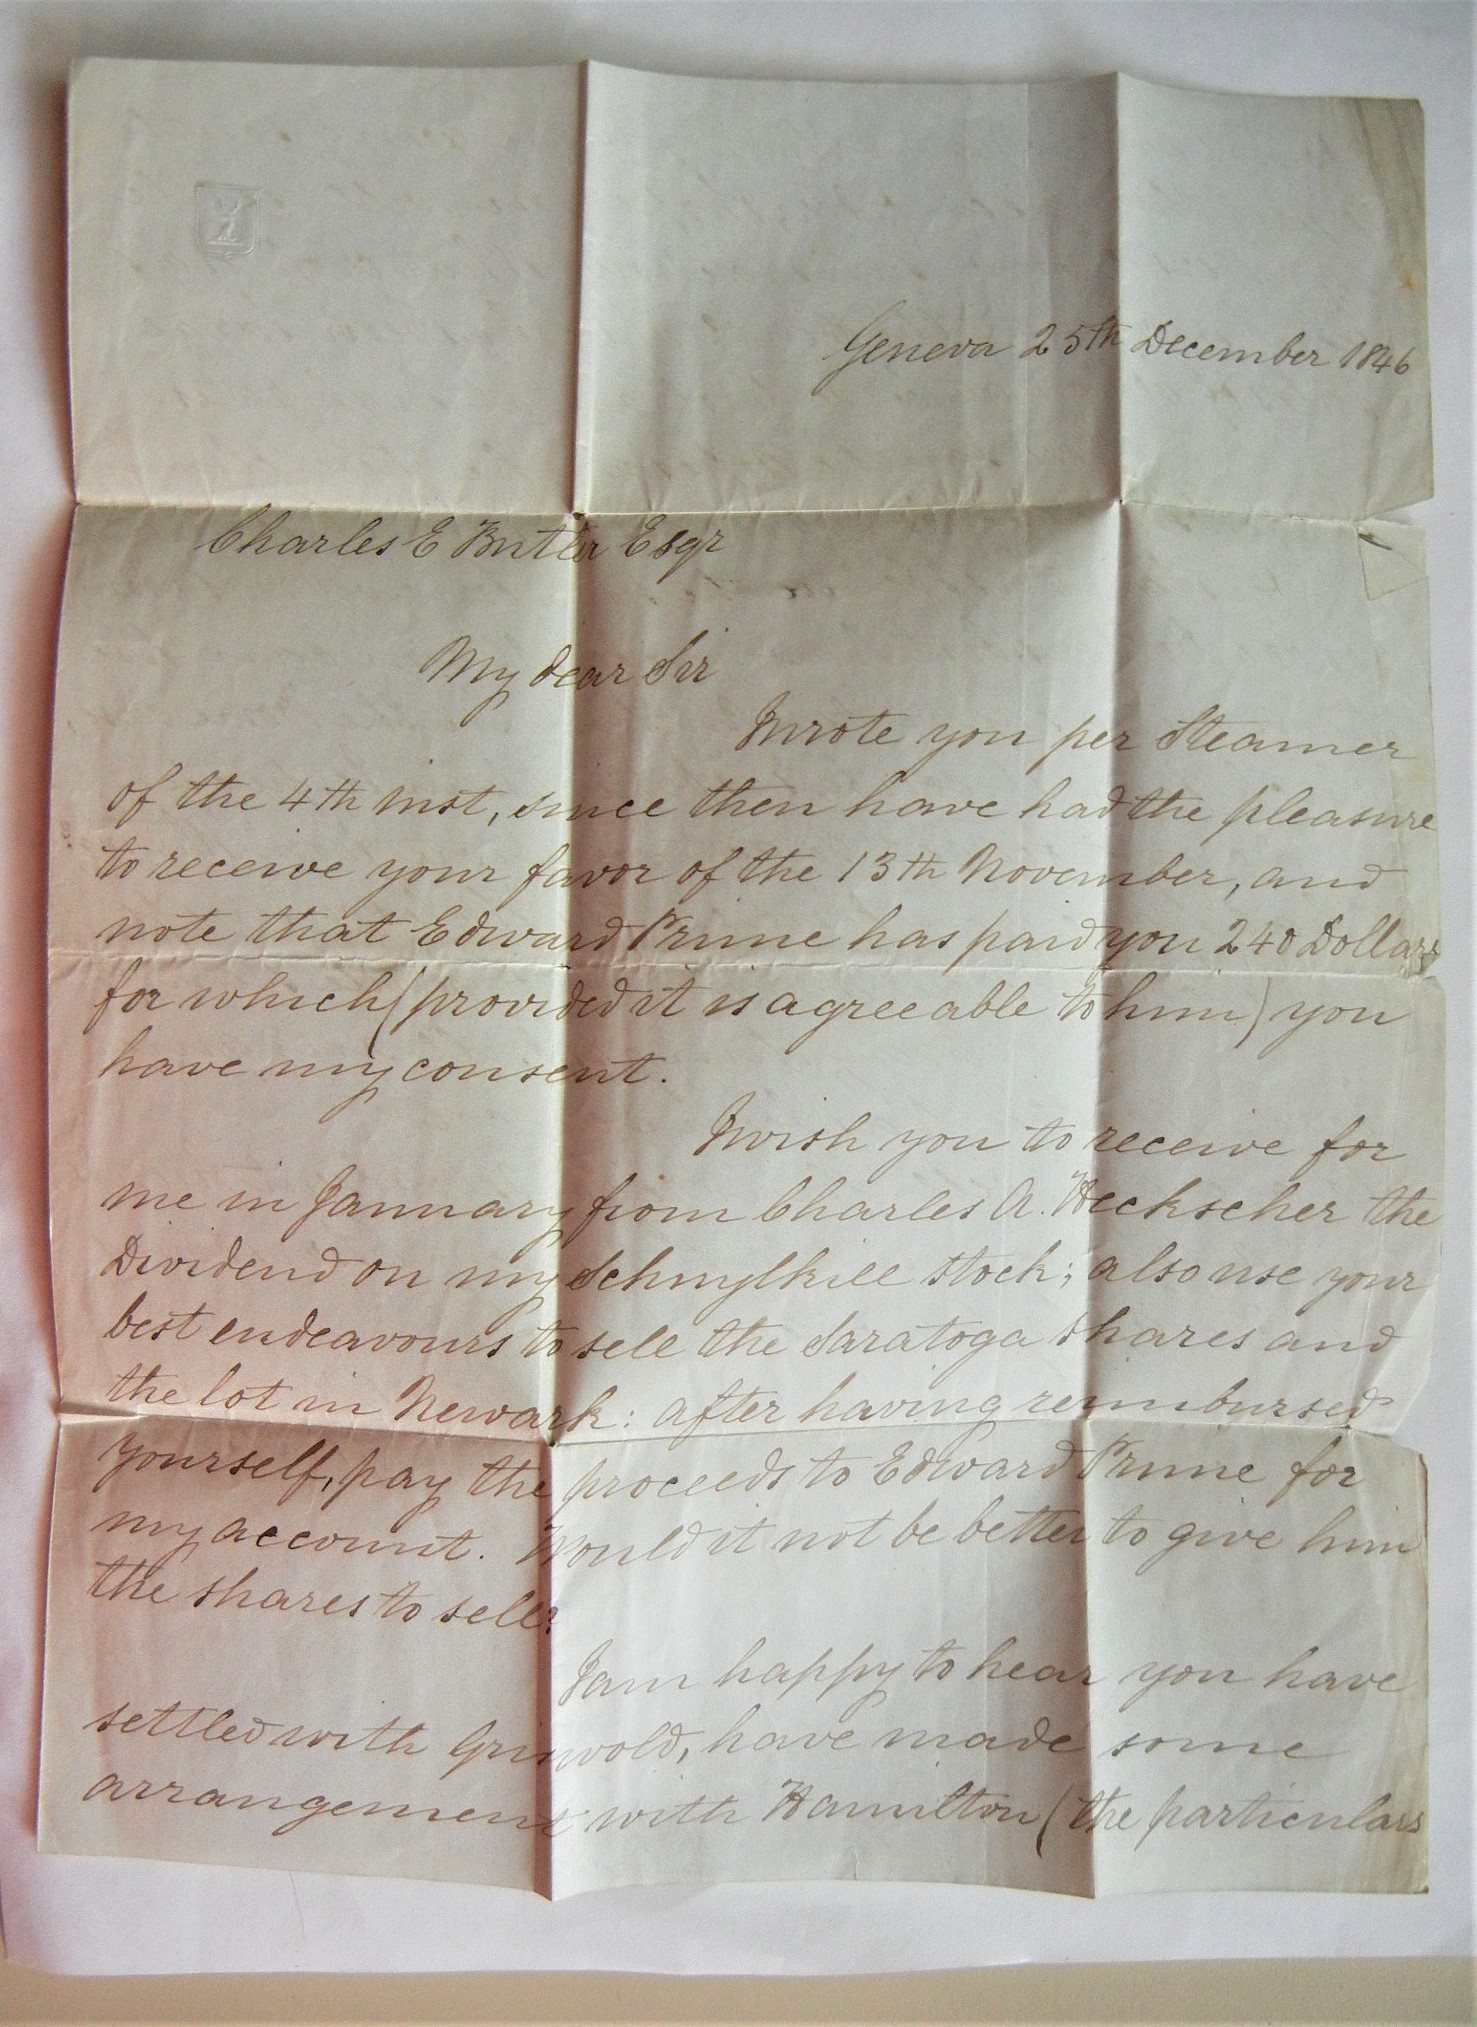 Geneva 25th December 1846
Charles E Butler Esqr
My dear Sir
I wrote you per Steamer
of the 4th inst, since then have had the pleasure
to receive your favor of the 13th November, and
note that Edward Prime has paid you 240 Dollars
for which (provided it is agreeable to him) you
have my consent.
I wish you to receive for
me in January from Charles A. Heckscher the
Dividend on my Schuylkill stock; also use your
best endeavours to sell the Saratoga shares and
the lot in Newark: after having reimbursed
yourself, pay the proceeds to Edward Prime for
my account. Would it not be better to give him
the shares to sell?
I am happy to hear you have
settled with Griswold, have made some
arrangement with Hamilton (the particulars